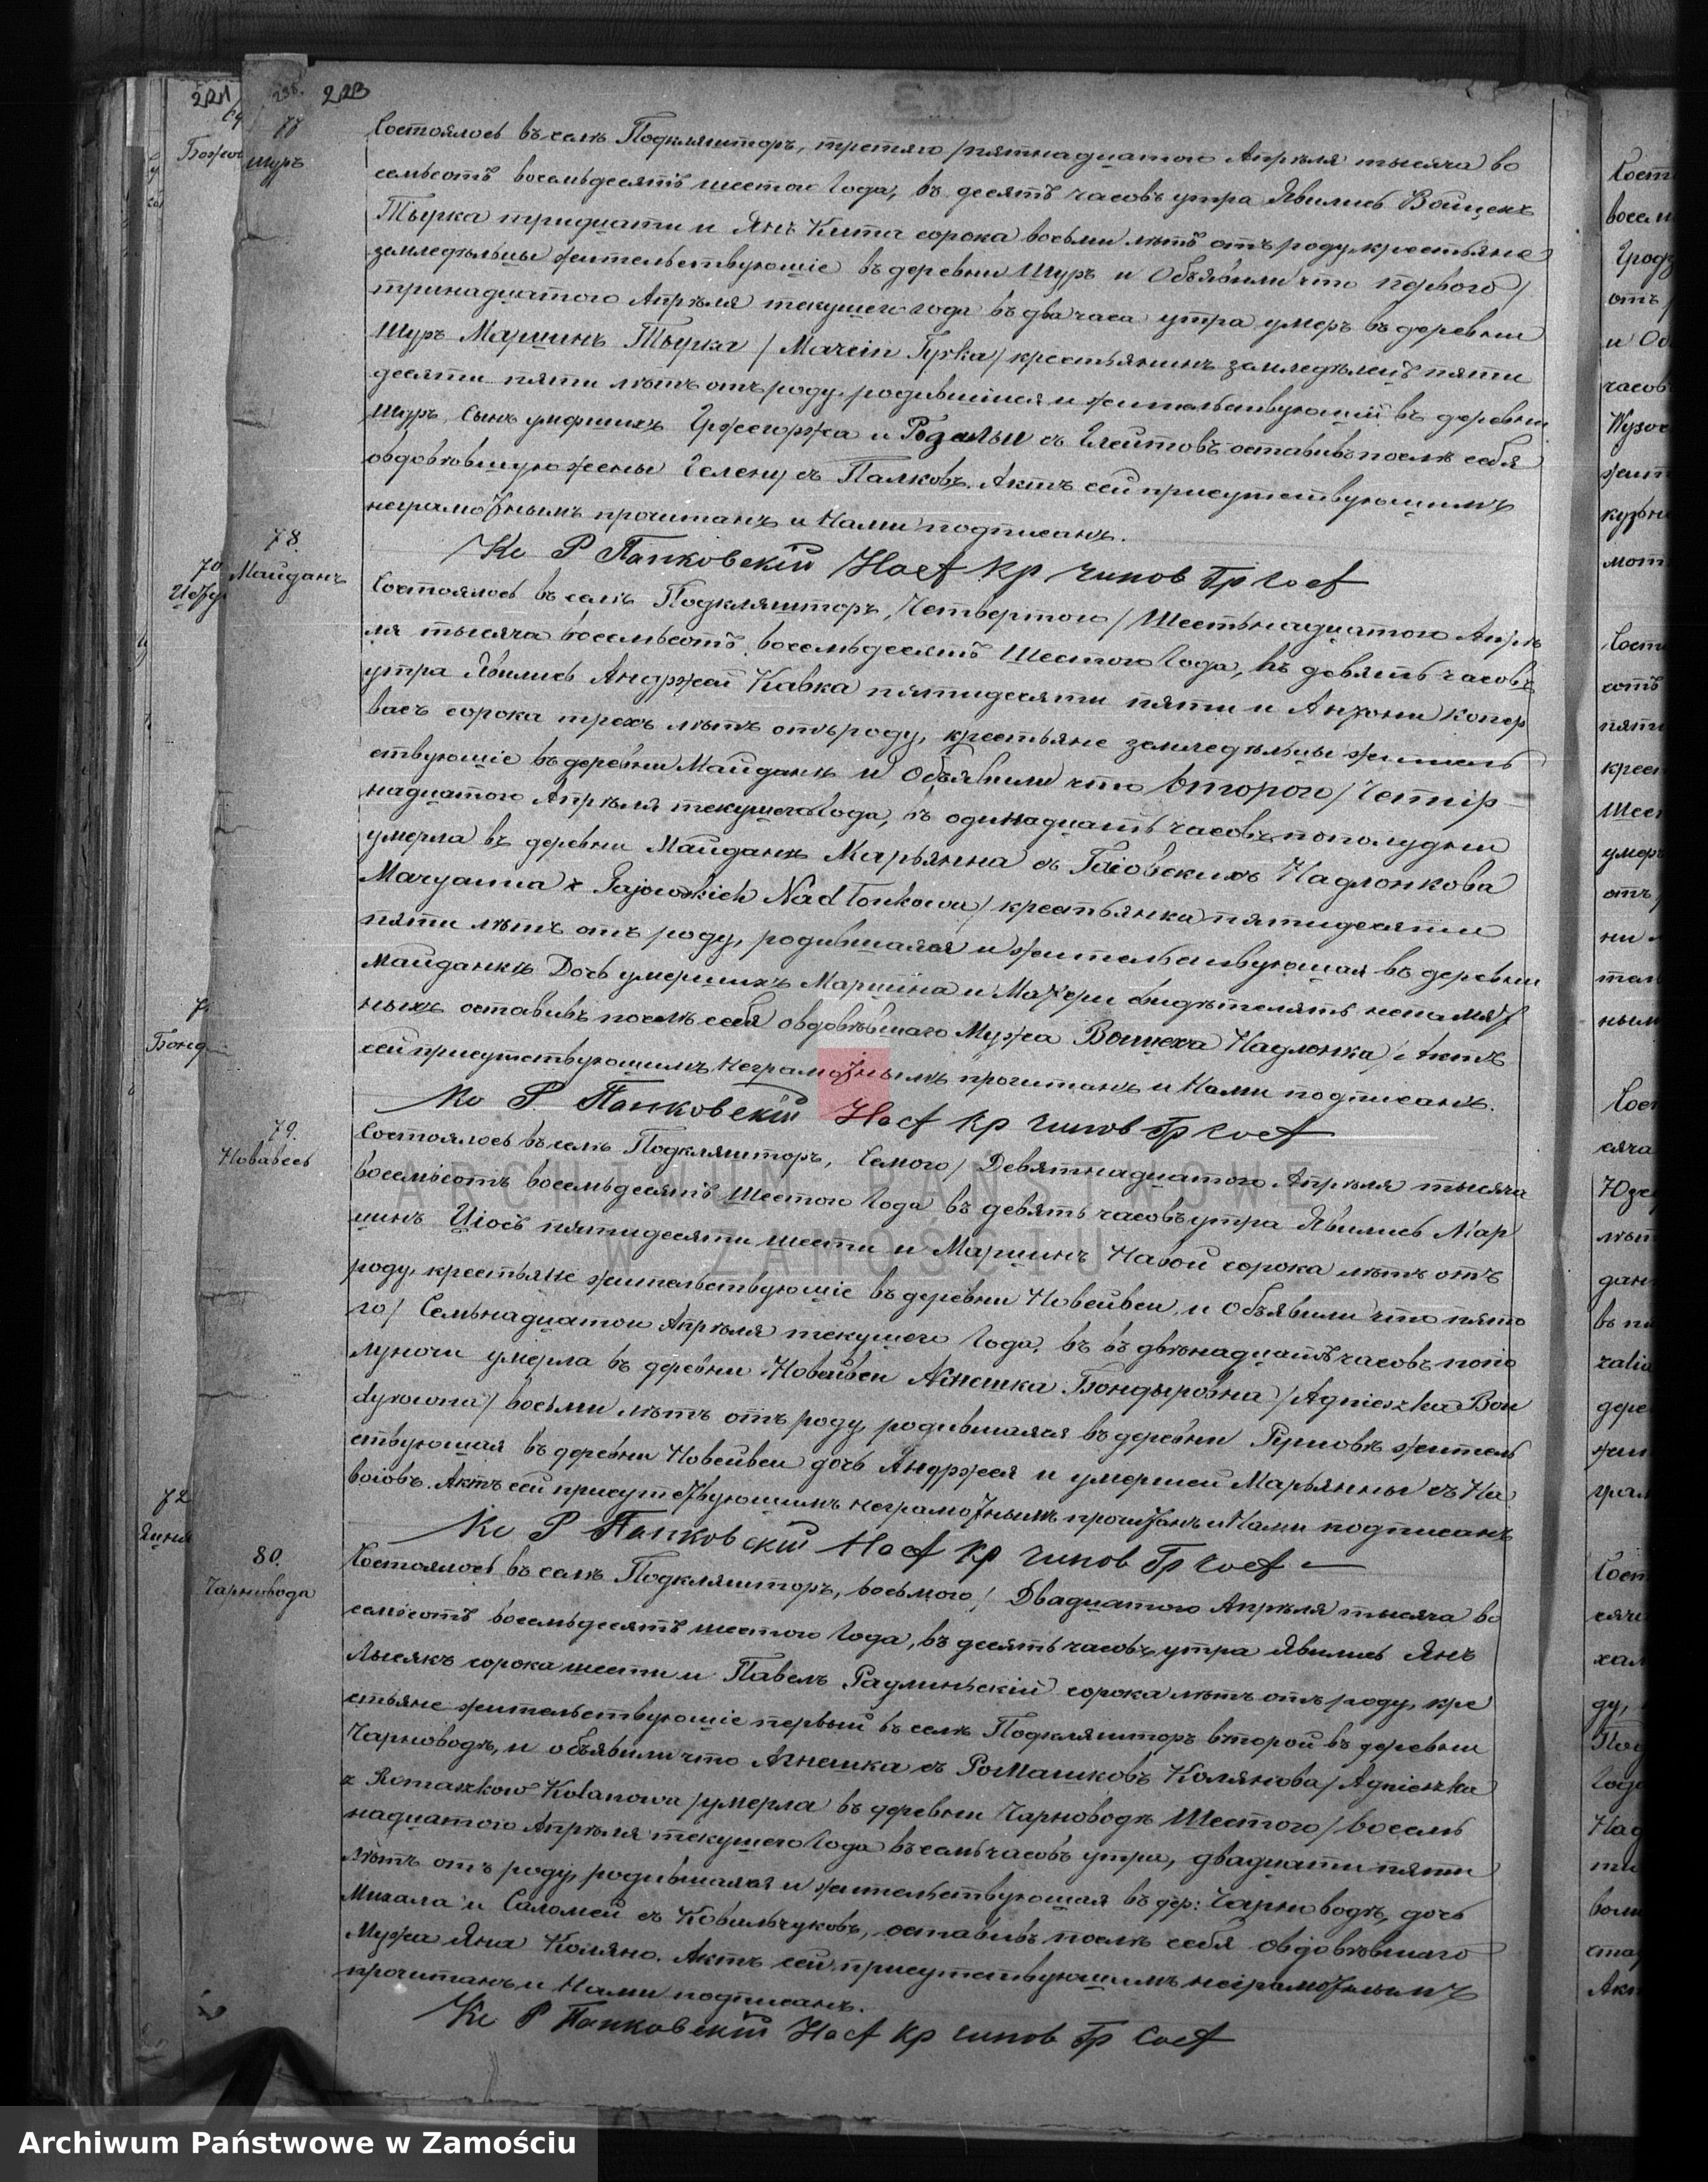 221
223
77
Шуръ
Состоялось въ селѣ Подкляшторъ, третяго /пятнадцатого Апрѣля тысяча во
семьсотъ восемьдесятъ шестого Года, въ десятъ часовъ утра Явились Войцехъ
Тырка тридцати и Янъ Кита сорока восьми лѣтъ отъ роду, крестьяне
земледѣльцы жительствующіе въ деревни Шуръ и Объявили что первого /
тринадцатого Апрѣля текущего года въ два часа утра умеръ въ деревни
Шуръ Марцинъ Тырка / Marcin Tyrka / крестьянинъ земледѣлецъ пяти
десяти пяти лѣтъ отъ роду, родившійся и жительствующій въ деревни
Шуръ, Сынъ умершихъ Гржегоржа и Розаліи съ оставивъ послѣ себя
овдовѣвшую жены Гелену съ Палковъ. Актъ сей присутствующимъ
неграмотнымъ прочитанъ и Нами подписанъ.
Кс Р Папковскій Наст Кр чинов Гр Сост
78.
Майданъ
Состоялось въ селѣ Подкляшторъ, Четвертого / Шестьнадцатого Апрѣ
ля тысяча восемьсотъ восемьдесятъ Шестого Года, въ девять часовъ
утра Явились Андржей Кавка пятидесяти пяти и Антони Копер
васъ сорока трехъ лѣтъ отъ роду, крестьяне земледѣльцы житель
ствующіе въ деревни Майданѣ и Объявили что второго / Четыр
надцатого Апрѣля текущего Года, въ одинадцать часовъ пополудни
умерла въ деревни Майданѣ Марьянна съ Гаіовскихъ Надлонкова
Maryanna z Gajowskich Nadłonkowa / крестьянка пятидесяти
пяти лѣтъ отъ роду, родившаяся и жительствующая въ деревни
Майданѣ Дочь умершихъ Марцина и Матери свидѣтелямъ непамят
ныхъ оставивъ послѣ себя овдовѣвшаго Мужа Войцеха Надлонка, Актъ
сей присутствующимъ неграмотнымъ прочитанъ и Нами подписанъ.
Кс Р. Папковскій Наст Кр чинов Гр Сост
79.
Новавесь
Состоялось въ селѣ Подкляшторъ, Семого / Девятнадцатого Апрѣля тысяча
восемьсотъ восемьдесятъ Шестого Года въ девять часовъ утра Явились Мар
цинъ Ціосъ пятидесяти шести и Марцинъ Навой сорока лѣтъ отъ
роду, крестьяне жительствующіе въ деревни Новейвси, и Объявили что пято
го / Семьнадцатого Апрѣля текущего Года, въ въ двѣнадцать часовъ попо
луночи умерла въ деревни Новейвси Агнешка Бондыровна / Agnieszka Bon
dyrowna / восьми лѣтъ отъ роду, родившаяся въ деревни житель
ствующая въ деревни Новейвси дочь Андржея и умершей Марьянны съ На
воіовъ. Актъ сей присутствующимъ неграмотнымъ прочитанъ и Нами подписанъ
Кс Р Папковскій Наст Кр чинов Гр Сост
80.
Чарновода
Состоялось въ селѣ Подкляшторъ, восьмого / Двадцатого Апрѣля тысяча во
семьсотъ восемьдесятъ шестого Года, въ десять часовъ утра Явились Янъ
Лысякъ сорока шести и Павелъ Радлиньскій сорока лѣтъ отъ роду, кре
стьяне жительствующіе первый въ селѣ Подкляшторъ второй въ деревни
Чарноводѣ, и объявили что Агнешка съ Ромашковъ Колянова / Agnieszka
z Romaszkow Kolanowa / умерла въ деревни Чарноводѣ Шестого / восемь
надцатого Апрѣля текущего Года въ семь часовъ утра, двадцати пяти
лѣтъ отъ роду, родившаяся и жительствующая въ дер: Чарноводѣ, дочь
Михала и Саломеи съ Ковальчуковъ, оставивъ послѣ себя овдовѣвшаго
Мужа Яна Коляно. Актъ сей присутствующимъ неграмотнымъ
прочитанъ и Нами подписанъ.
Кс Р Папковскій Наст Кр чинов Гр Сост
ARCHIWUM PAŃSTWOWE
W ZAMOŚCIU
Archiwum Państwowe w Zamościu